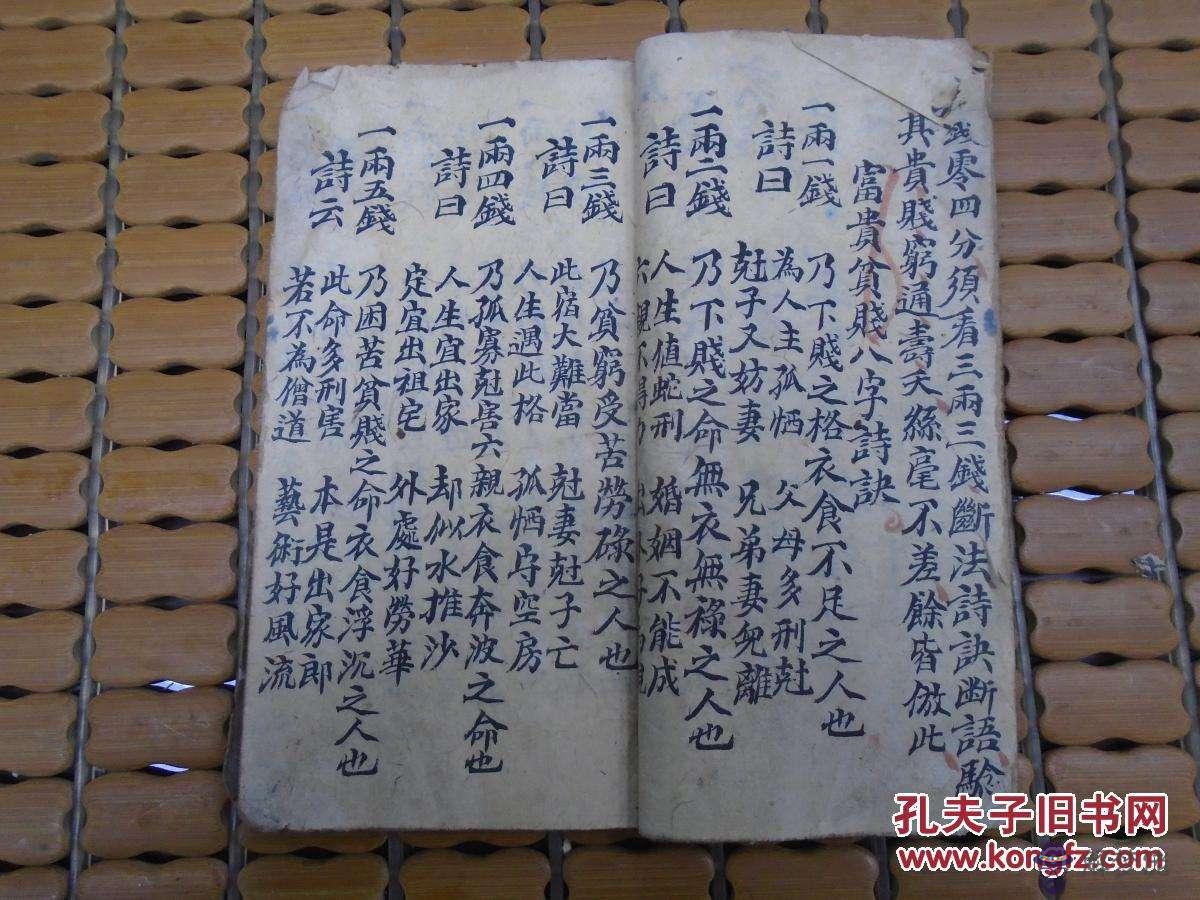 錢零四分須看三兩三錢斷法詩訣断語驗
其貴賤窮通壽夭絲毫不差餘皆倣此
富貴貧賤八字詩訣
一兩一錢 乃下賤之格衣食不足之人也
詩曰 為人主孤恓 父母多刑尅
尅子又妨妻 兄弟妻免離
一兩二錢 乃下賤之命無衣無祿之人也
詩曰 人生值蛇刑 婚姻不能成
六親不
一兩三錢 乃貧窮受苦勞碌之人也
詩曰 此宿大難當 尅妻尅子亡
人生遇此格 孤恓守空房
一兩四錢 乃孤寡尅害六親衣食奔波之命也
詩曰 人生宜出家 却似水推沙
定宜出祖宅 外處好勞華
一兩五錢 乃困苦貧賤之命衣食浮沉之人也
詩云 此命多刑害 本是出家郎
若不為僧道 藝術好風流
孔夫子旧书网
www.kongfz.com